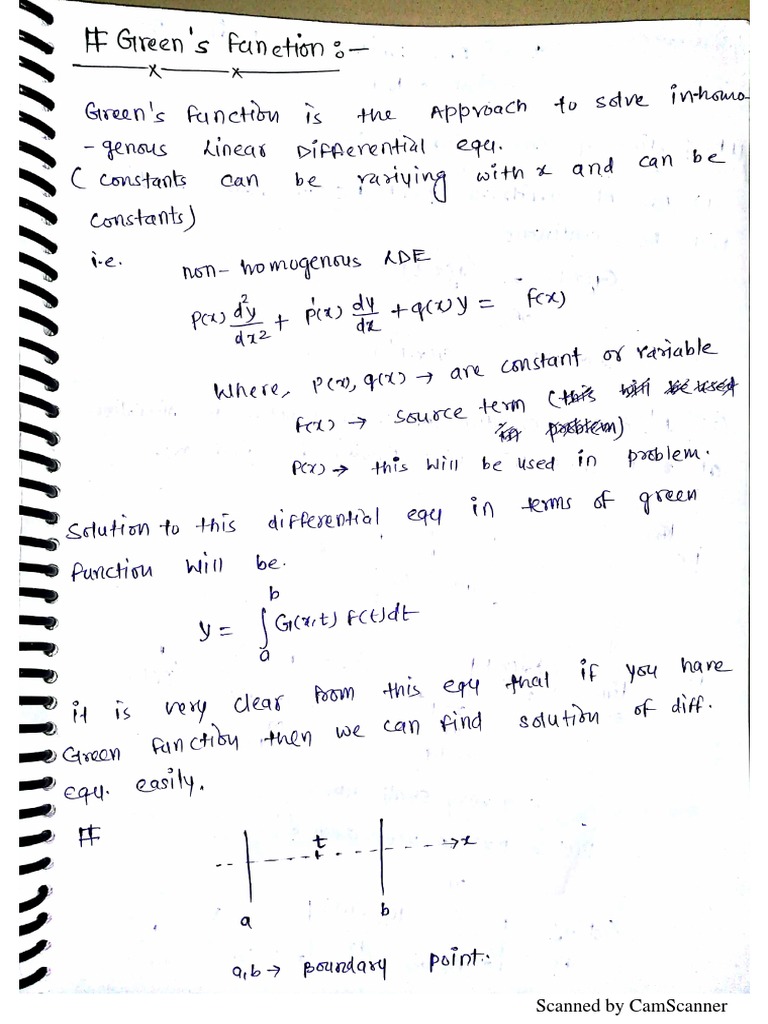 # Green's Function :-
Green's Function is the Approach to solve in-homo
-genous Linear Differential equ.
( constants can be variying with x and can be
constants)
i.e. non-homogenous LDE
P(x) d²y/dx² + p'(x) dy/dx + q(x) y = F(x)
Where, P(x), q(x) → are constant or variable
F(x) → source term (this will be used
in problem)
P(x) → this will be used in problem.
Solution to this differential equ in terms of green
function will be.
y = ∫ₐᵇ G(x,t) F(t) dt
it is very clear from this equ that if you have
Green function then we can find solution of diff.
equ. easily.
#
t
→x
a b
a,b → Boundary point.
Scanned by CamScanner